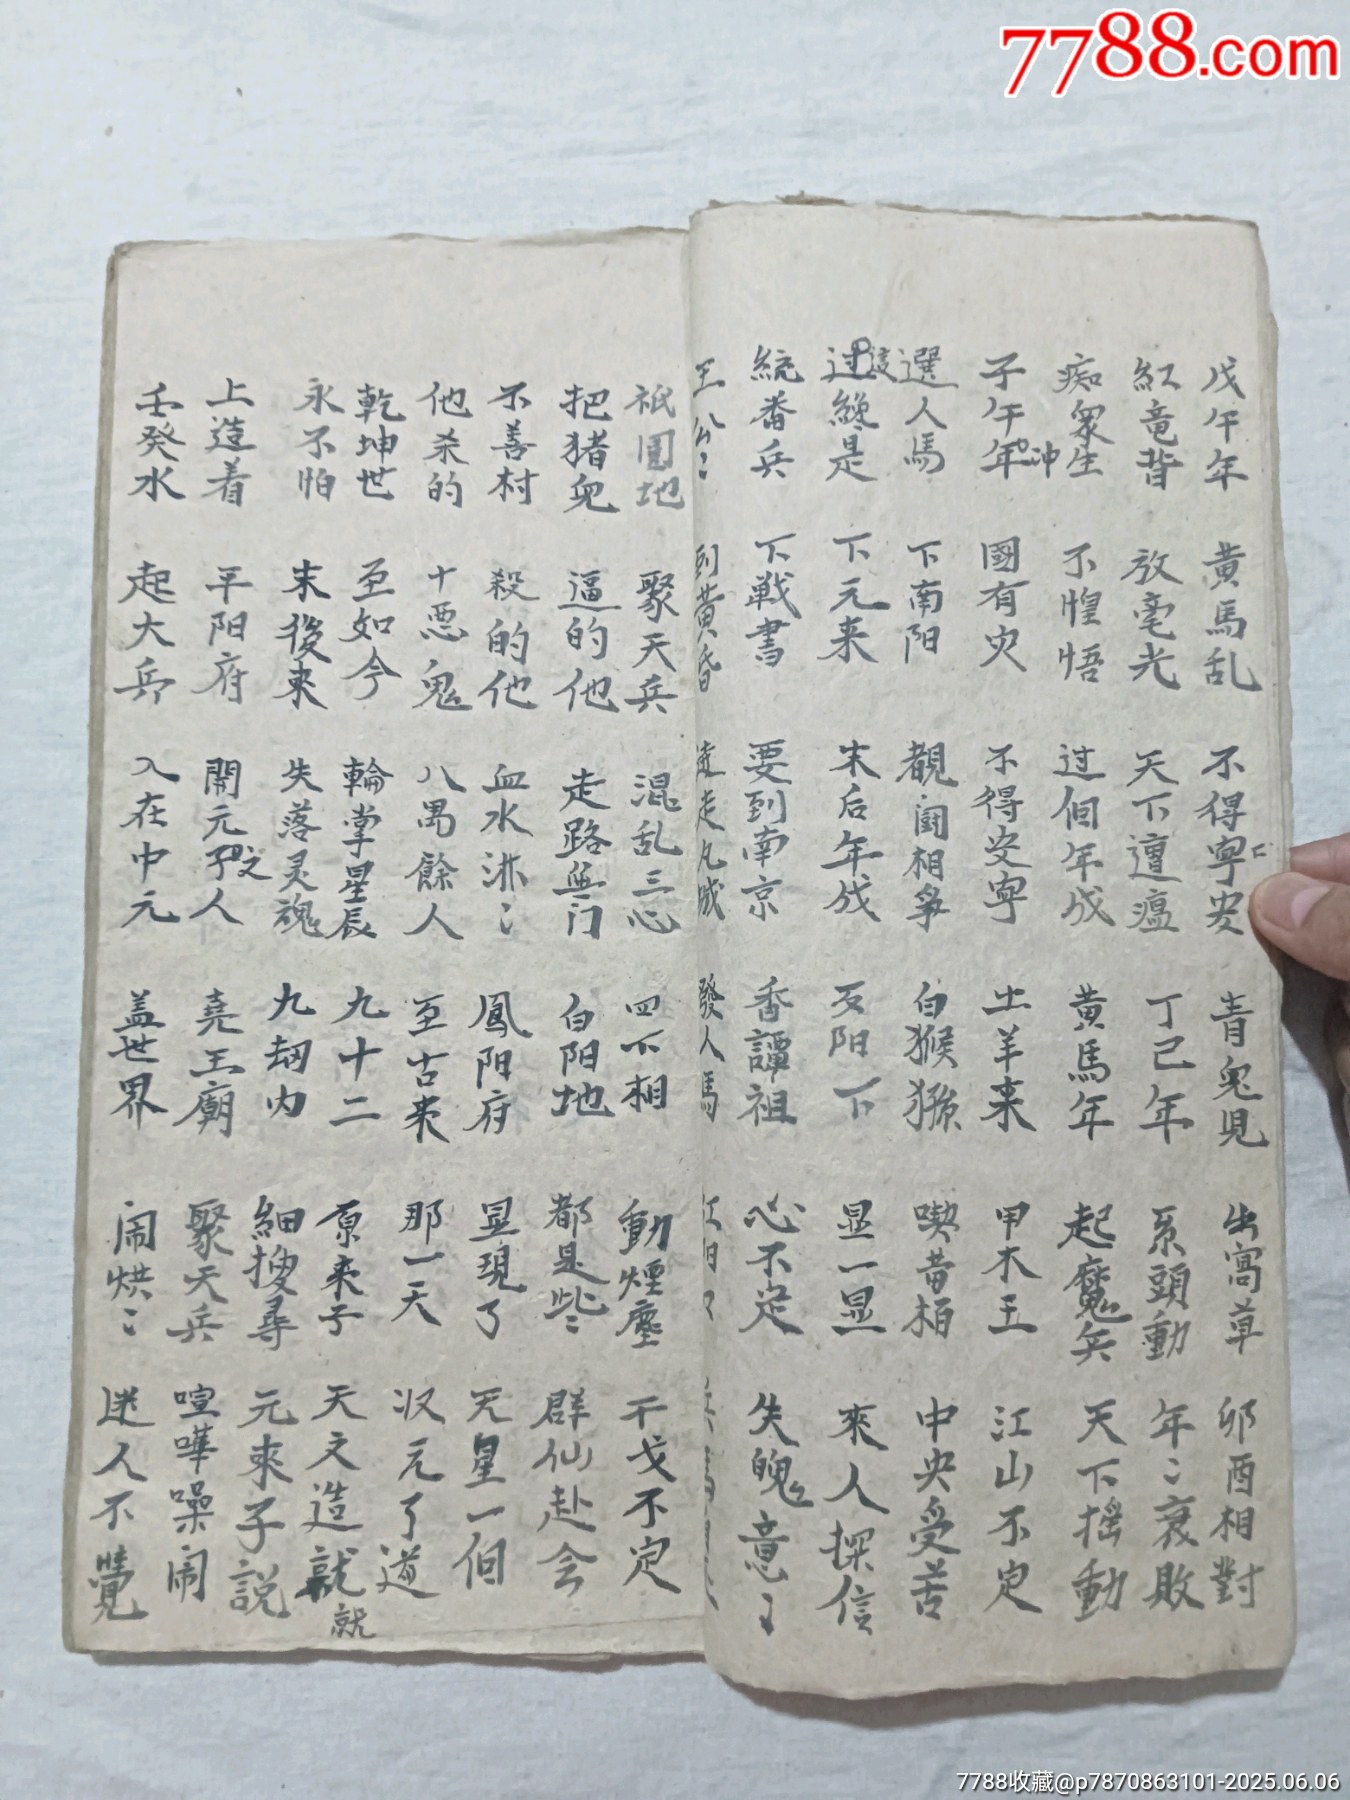 7788.com
戊午年 黄馬乱 不得寧安 青兔児 出窩草 卯酉相對
紅竜背 放毫光 天下遭瘟 丁己年 系頭動 年〻衰敗
痴衆生 不惺悟 过個年成 黄馬年 起魔兵 天下摇動
子午年冲 國有灾 不得安寧 土羊来 甲木王 江山不定
選人馬 下南阳 覩閗相爭 白猴猻 喫昔栢 中央受苦
这过纔是 下元来 末后年成 反阳下 显一显 來人探信
統番兵 下戦書 要到南京 香譚祖 心不定 失魄意〻
王公〻 到黄昏 走九城 發人馬
祇園地 聚天兵 混乱三心 四不相 動煙塵 干戈不定
把猪兒 逼的他 走路無门 白阳地 都是些〻 群仙赴会
不善村 殺的他 血水淋〻 鳳阳府 显現了 天星一個
他杀的 十悪鬼 八萬餘人 至古来 那一天 収元了道
乾坤世 至如今 輪掌星辰 九十二 原来子 天文造就
就
永不怕 末後来 失落灵魂 九劫内 細搜尋 元來子説
上造着 平阳府 開元子文人 堯王廟 聚天兵 喧嘩噪闹
壬癸水 起大兵 入在中元 盖世界 闹烘〻 迷人不覺
7788收藏@p7870863101-2025.06.06